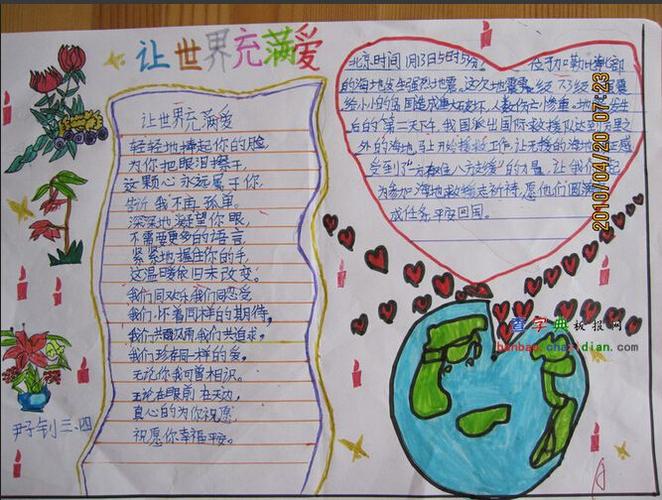 让世界充满爱
让世界充满爱
轻轻地捧起你的脸,
为你把眼泪擦干,
这颗心永远属于你,
告诉我不再孤单。
深深地凝望你眼,
不需要更多的语言,
紧紧地握住你的手,
这温暖依旧未改变。
我们同欢乐我们同忍受
我们怀着同样的期待,
我们共风雨我们共追求,
我们珍存同样的爱,
无论你我可曾相识。
无论在眼前在天边,
真心的为你祝愿
祝愿你幸福平安。
尹子钊三、四
北京时间1月13日5时5分 位于加勒比北部
的海地发生强烈地震。这次地震震级7.3级
给小小的岛国造成重大破坏,人数伤亡惨重。地 发生
后的第二天下午,我国派出国际救援队达到万里之
外的海地,马上开始援救工作,让无援的海地
受到了“一方有难八方支援”的力量,让我们 起
为参加海地救援志祈祷,愿他们圆满
成任务,平安回国。
2010/04/20 07:23
查字典 板报网
banbao.chazidian.com